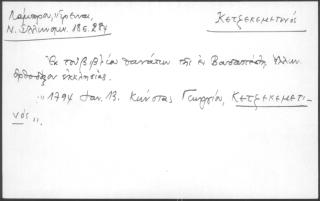 Λάμπρου, "Έρευναι,
Ν. Ελληνομν. 18 σ. 284
Κετζεκεμετινός
Ἐκ τοῦ βιβλίου θανάτων τῆς ἐν Βουδαπέστῃ Ἑλλην.
ὀρθοδόξου ἐκκλησίας.
"1794 Jan. 13. Κώνστας Γεωργίου, Κετζεκεμετι-
νός".